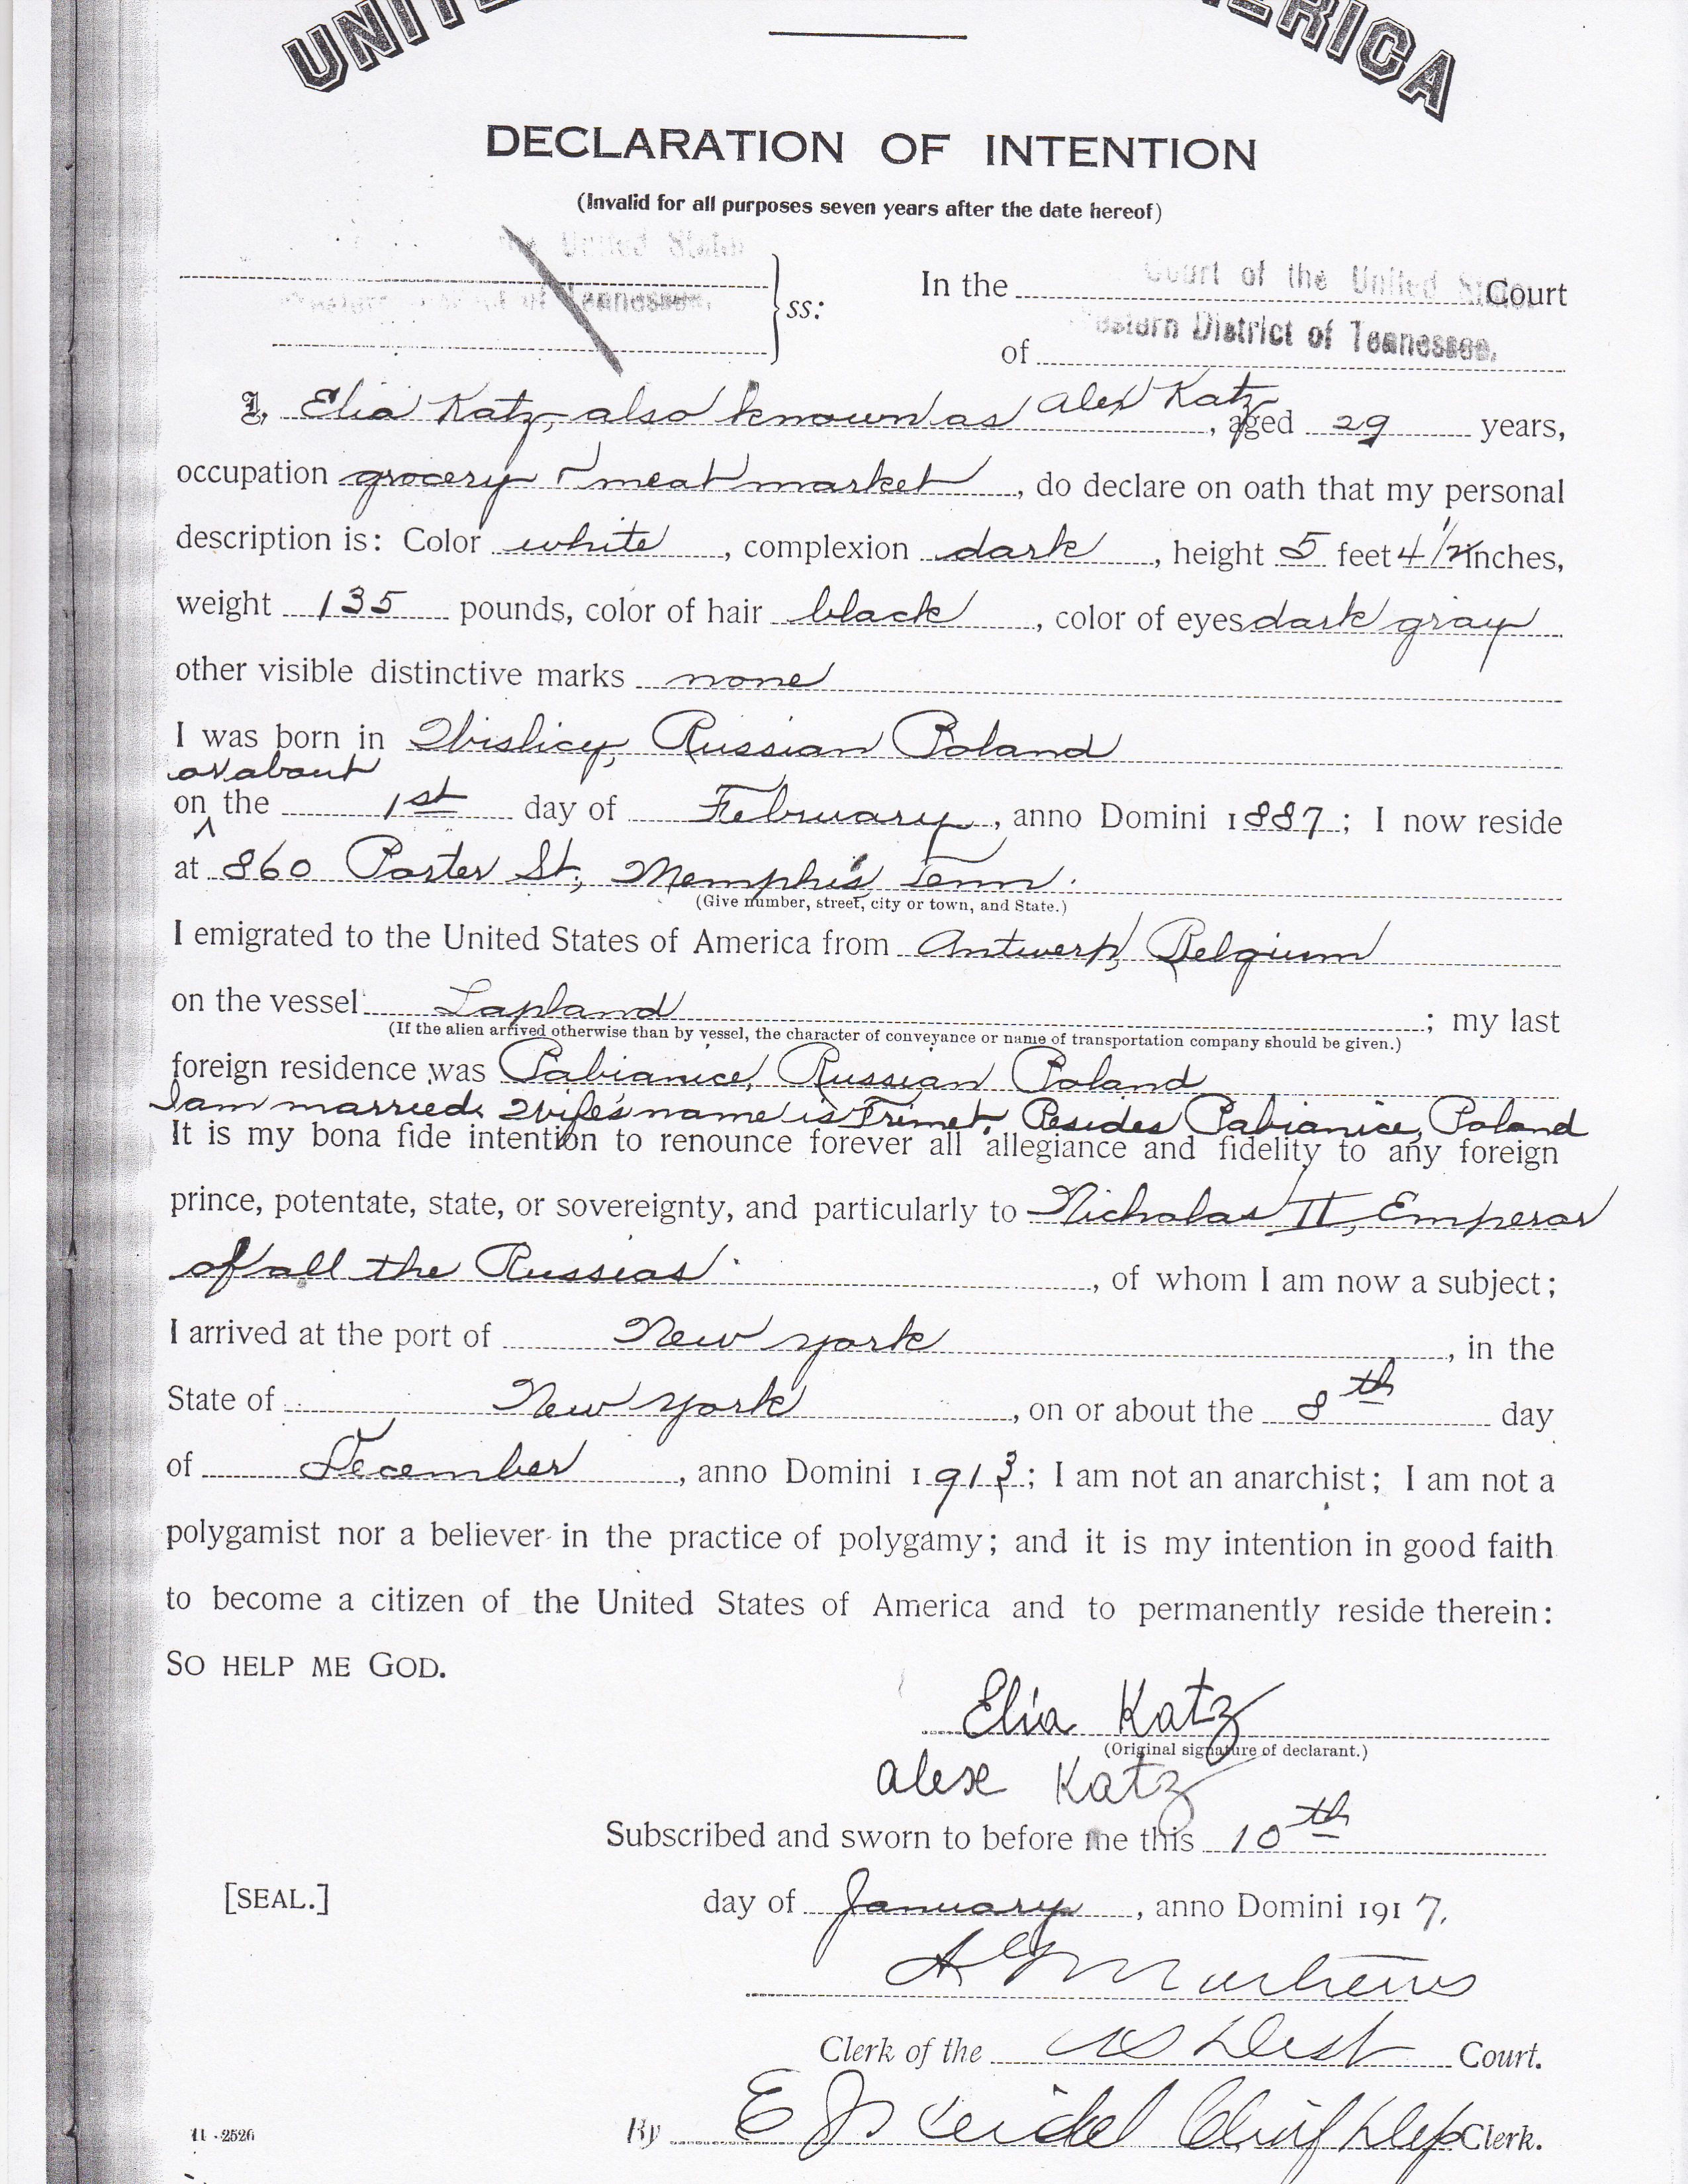 UNITED AMERICA
DECLARATION OF INTENTION
(Invalid for all purposes seven years after the date hereof)
United States
District of Tennessee.
ss:
In the Court of the United States Court
of Western District of Tennessee.
I, Elia Katz, also known as Alex Katz, aged 29 years,
occupation grocery & meat market, do declare on oath that my personal
description is: Color white, complexion dark, height 5 feet 4 1/2 inches,
weight 135 pounds, color of hair black, color of eyes dark gray
other visible distinctive marks none
I was born in Wislicy, Russian Poland
or about
on the 1st day of February, anno Domini 1887; I now reside
at 860 Porter St., Memphis, Tenn.
(Give number, street, city or town, and State.)
I emigrated to the United States of America from Antwerp, Belgium
on the vessel Lapland; my last
(If the alien arrived otherwise than by vessel, the character of conveyance or name of transportation company should be given.)
foreign residence was Pabianice, Russian Poland
I am married. Wife's name is Frimet. Resides Pabianice, Poland
It is my bona fide intention to renounce forever all allegiance and fidelity to any foreign
prince, potentate, state, or sovereignty, and particularly to Nicholas II, Emperor
of all the Russias, of whom I am now a subject;
I arrived at the port of New York, in the
State of New York, on or about the 8th day
of December, anno Domini 1913; I am not an anarchist; I am not a
polygamist nor a believer in the practice of polygamy; and it is my intention in good faith
to become a citizen of the United States of America and to permanently reside therein:
SO HELP ME GOD.
Elia Katz
(Original signature of declarant.)
Alex Katz
Subscribed and sworn to before me this 10th
[SEAL.]
day of January, anno Domini 1917.
Mathews
Clerk of the US Dist Court.
By E J Seidel Chief Dep Clerk.
11-2526